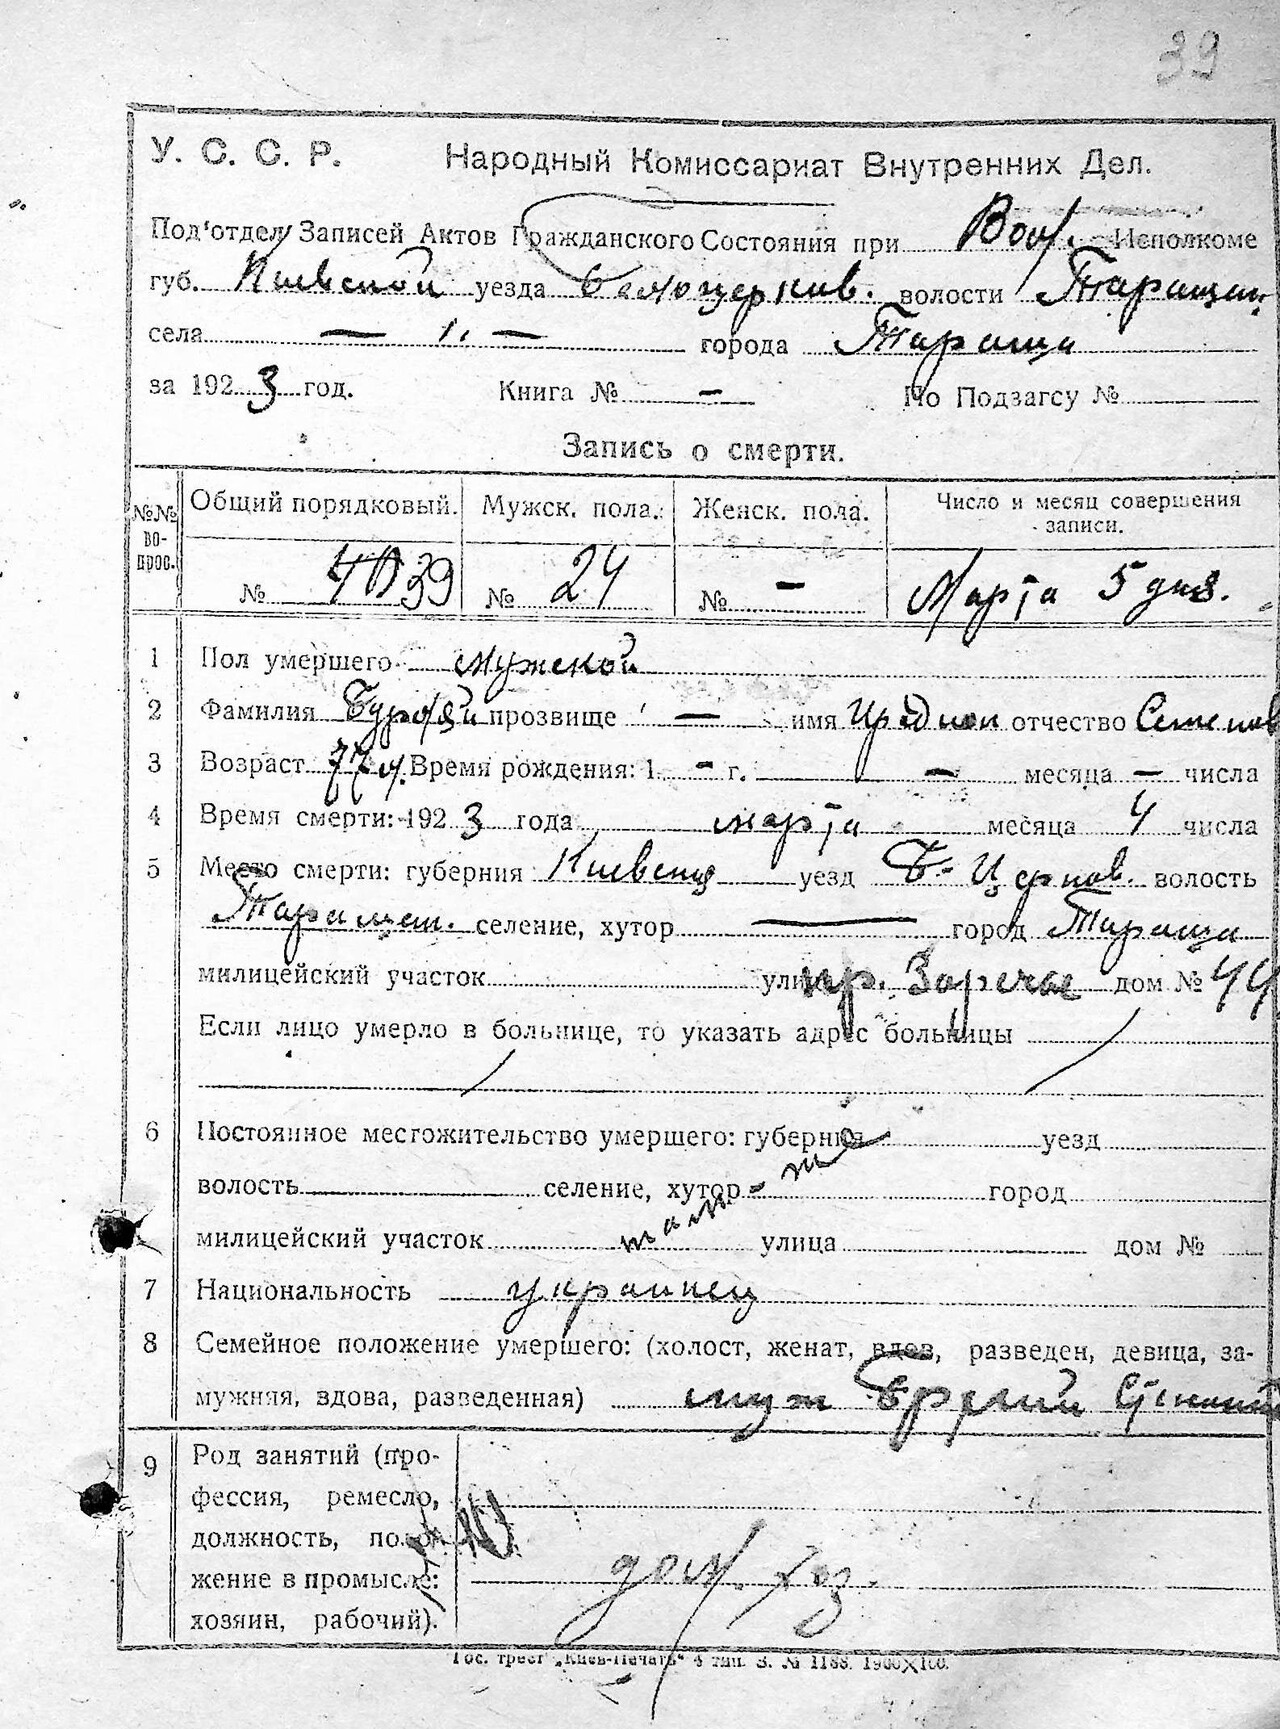 39
У. С. С. Р. Народный Комиссариат Внутренних Дел.
Под'отдел Записей Актов Гражданского Состояния при Вол. Исполкоме
губ. Киевской уезда Белоцерков. волости Таращан.
села — „ — города Тараща
за 1923 год. Книга № — По Подзагсу №
Запись о смерти.
№№ вопрос. Общий порядковый. Мужск. пола. Женск. пола. Число и месяц совершения записи.
№ 39 № 24 № — Марта 5 дня.
1 Пол умершего мужской
2 Фамилия прозвище — имя отчество Семенов
3 Возраст 77 л. Время рождения: 1 - г. — месяца — числа
4 Время смерти: 1923 года марта месяца 4 числа
5 Место смерти: губерния уезд Б-Церков. волость
Таращан. селение, хутор — город Тараща
милицейский участок улица пр. Заречье дом № 44
Если лицо умерло в больнице, то указать адрес больницы
6 Постоянное местожительство умершего: губерния уезд
волость селение, хутор город
милицейский участок улица дом №
там-же
7 Национальность украинец
8 Семейное положение умершего: (холост, женат, вдов, разведен, девица, за-
мужняя, вдова, разведенная) муж
9 Род занятий (про-
фессия, ремесло,
должность, поло-
жение в промысле:
хозяин, рабочий).
дом. хоз.
Гос. трест „Киев-Печать" 4 тип. З. № 1188. 1900×100.